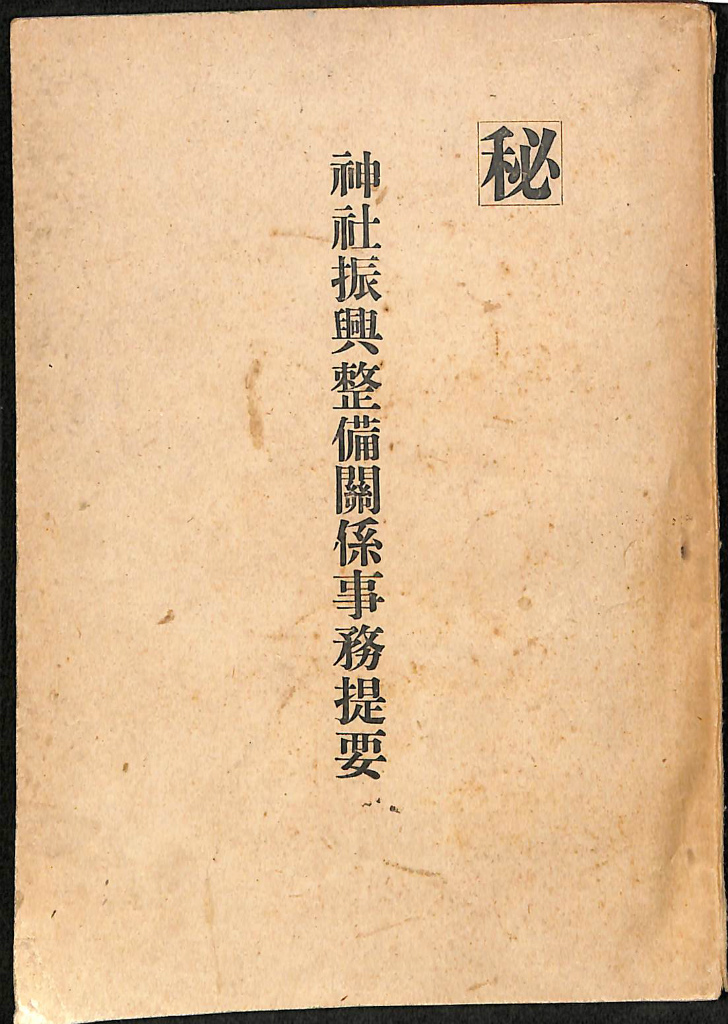 秘
神社振興整備關係事務提要